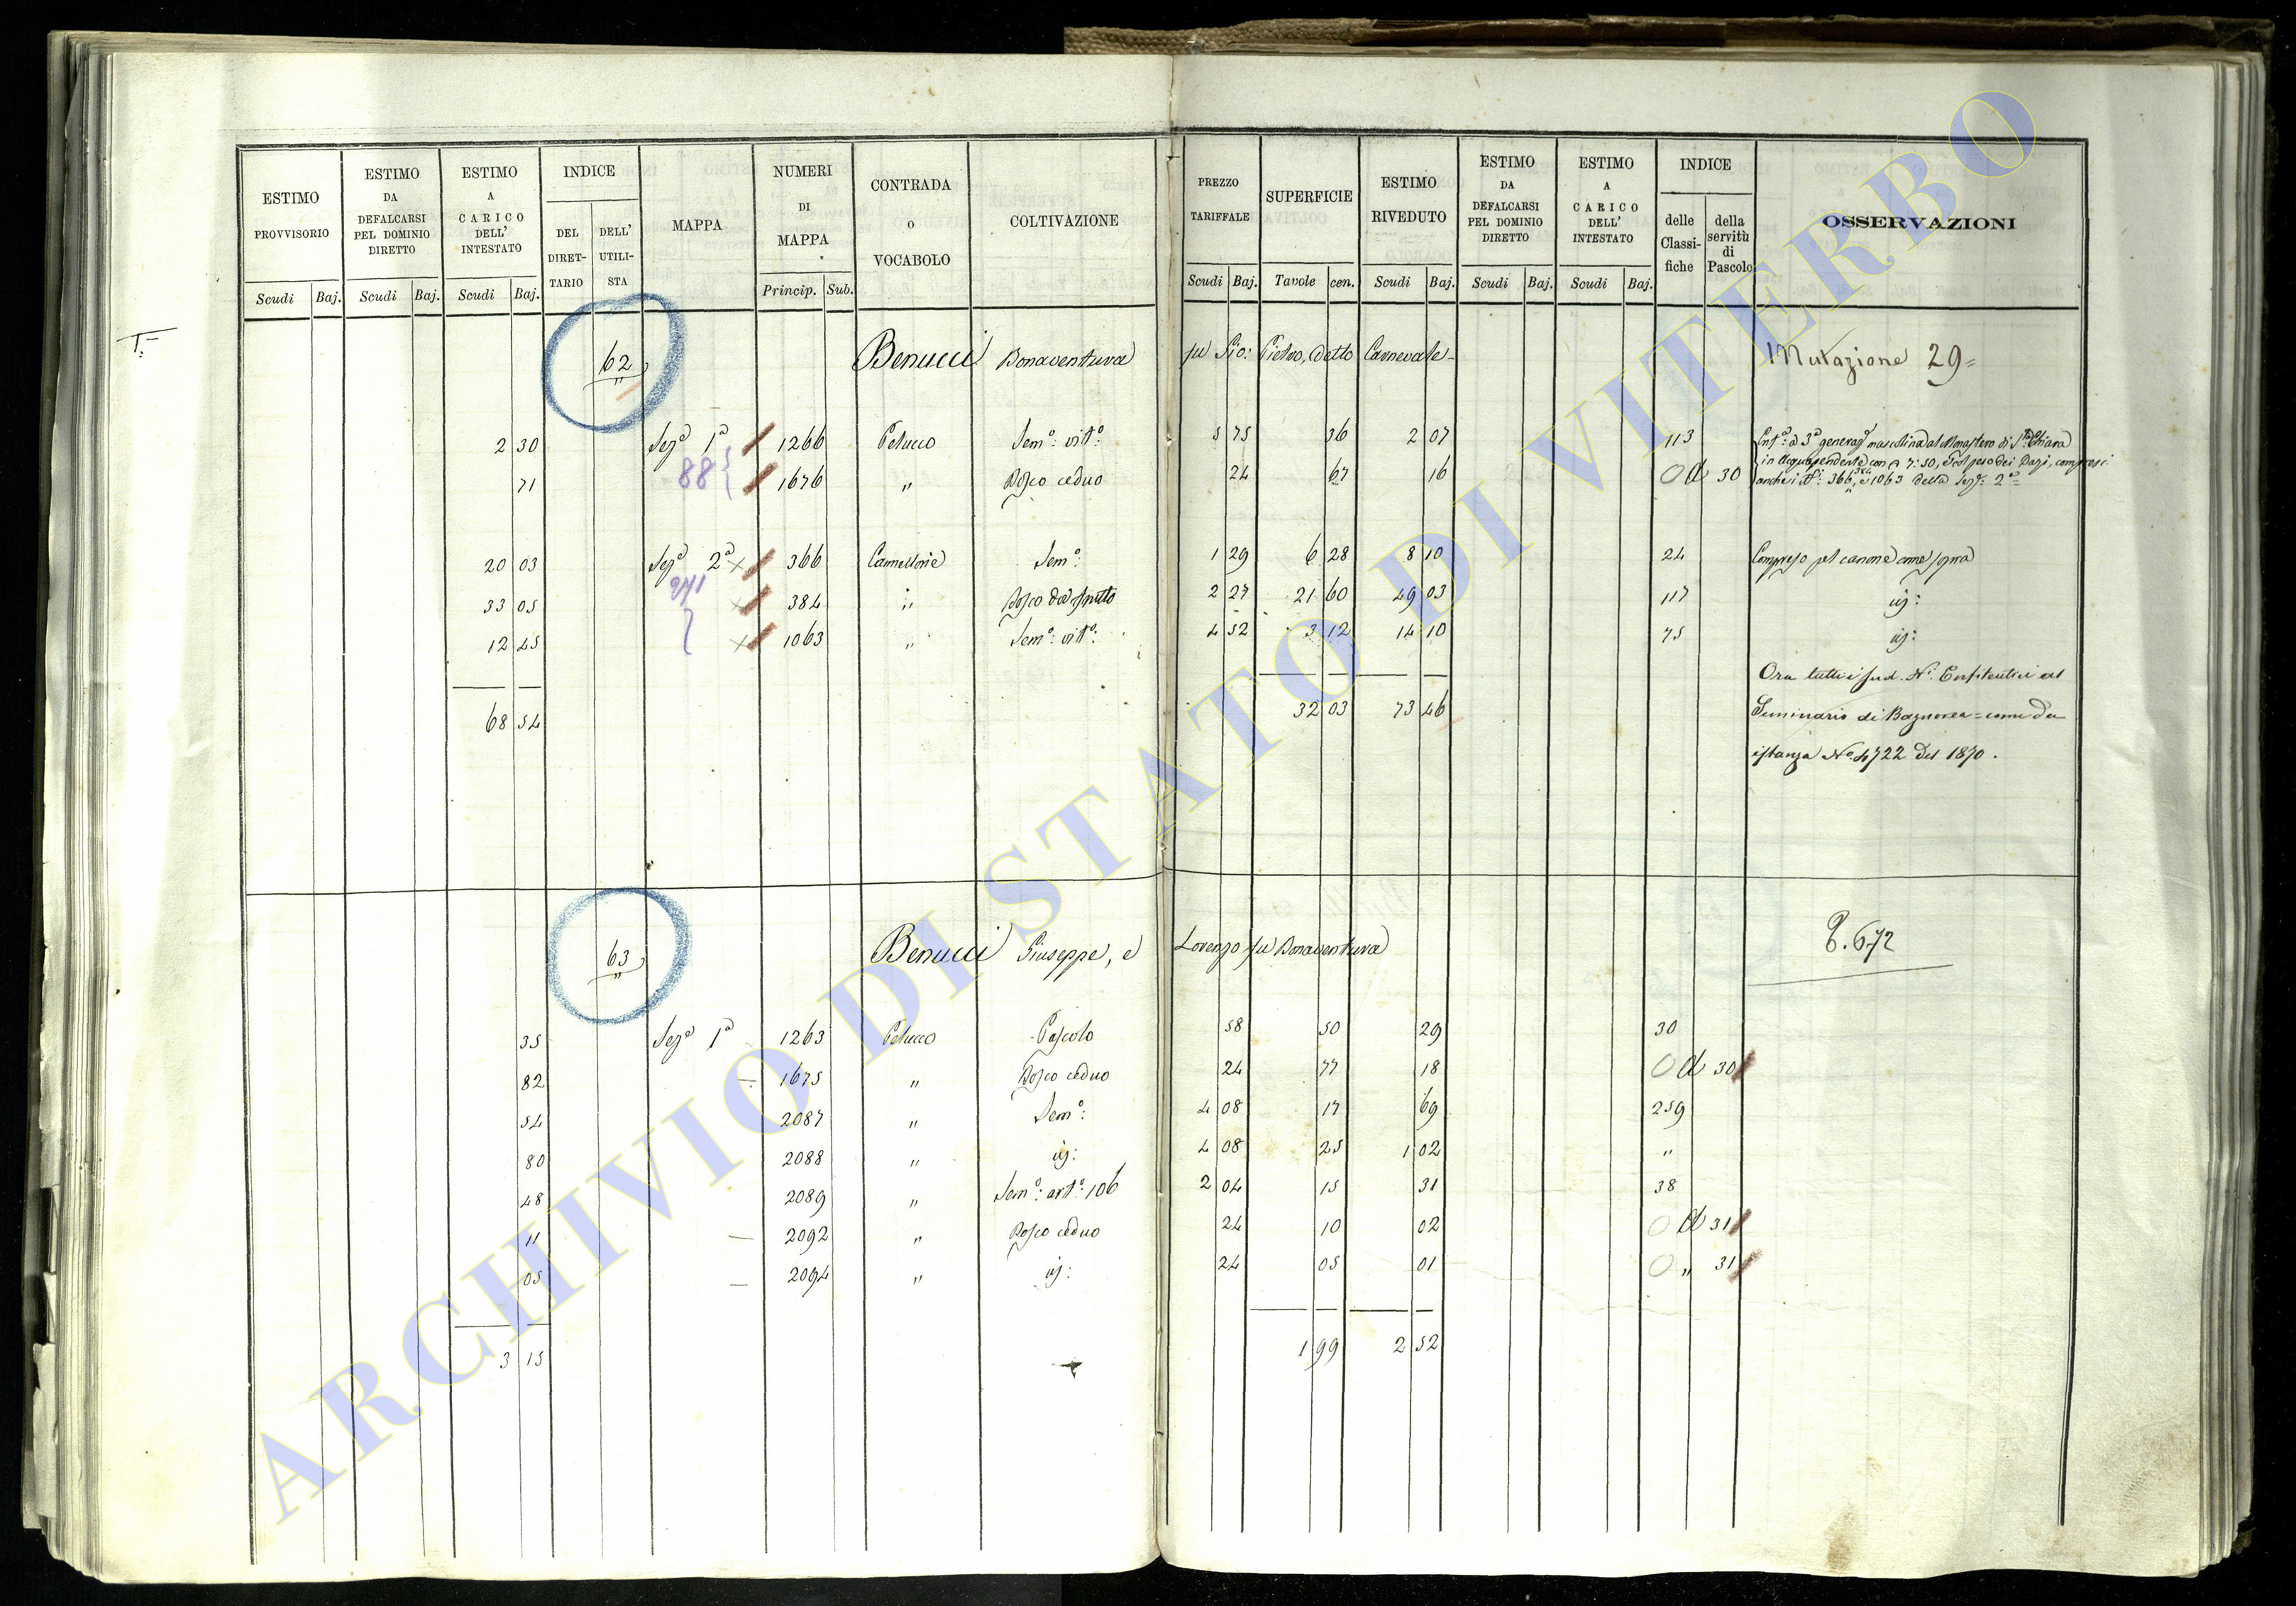 ESTIMO PROVVISORIO Scudi Baj.
ESTIMO DA DEFALCARSI PEL DOMINIO DIRETTO Scudi Baj.
ESTIMO A CARICO DELL' INTESTATO Scudi Baj.
INDICE DEL DIRET-TARIO DELL' UTILI-STA
MAPPA
NUMERI DI MAPPA Princip. Sub.
CONTRADA o VOCABOLO
COLTIVAZIONE
PREZZO TARIFFALE Scudi Baj.
SUPERFICIE Tavole cen.
ESTIMO RIVEDUTO Scudi Baj.
ESTIMO DA DEFALCARSI PEL DOMINIO DIRETTO Scudi Baj.
ESTIMO A CARICO DELL' INTESTATO Scudi Baj.
INDICE delle Classi-fiche della servitù di Pascolo
OSSERVAZIONI
62 Benucci Bonaventura fu Gio: Pietro, detto Carnevale Mutazione 29=
2 30 Sezª 1ª 1266 Petucco Semº: vitº: 5 75 36 2 07 113
88
71 1676 " Bosco ceduo 24 67 16 O A 30
Entª: a 3ª generaª mascolina al Monastero di Sta Chiara
in Acquapendente con 7:50, col peso dei Dazi, compresi
anche i Nⁱ: 366, 384 e 1063 della Sezª: 2ª
20 03 Sezª 2ª x 366 Camellone Semº: 1 29 6 28 8 10 24 Compreso pel canone come sopra
241
33 05 x 384 " Bosco da frutto 2 27 21 60 49 03 117 id:
12 45 x 1063 " Semº: vitº: 4 52 3 12 14 10 75 id:
68 54 32 03 73 46
Ora tutti i sud. Nⁱ Enfiteutici al
Seminario di Bagnorea = come da
istanza Nº 4722 del 1870.
63 Benucci Giuseppe, e Lorenzo fu Bonaventura 672
35 Sezª 1ª 1263 Petucco Pascolo 58 50 29 30
82 — 1675 " Bosco ceduo 24 77 18 O A 30
54 2087 " Semº: 4 08 17 69 259
80 2088 " id: 4 08 25 1 02 "
48 2089 " Semº: artº: 106 2 04 15 31 38
11 — 2092 " Bosco ceduo 24 10 02 O A 31
05 — 2094 " id: 24 05 01 O " 31
3 15 1 99 2 52
ARCHIVIO DI STATO DI VITERBO